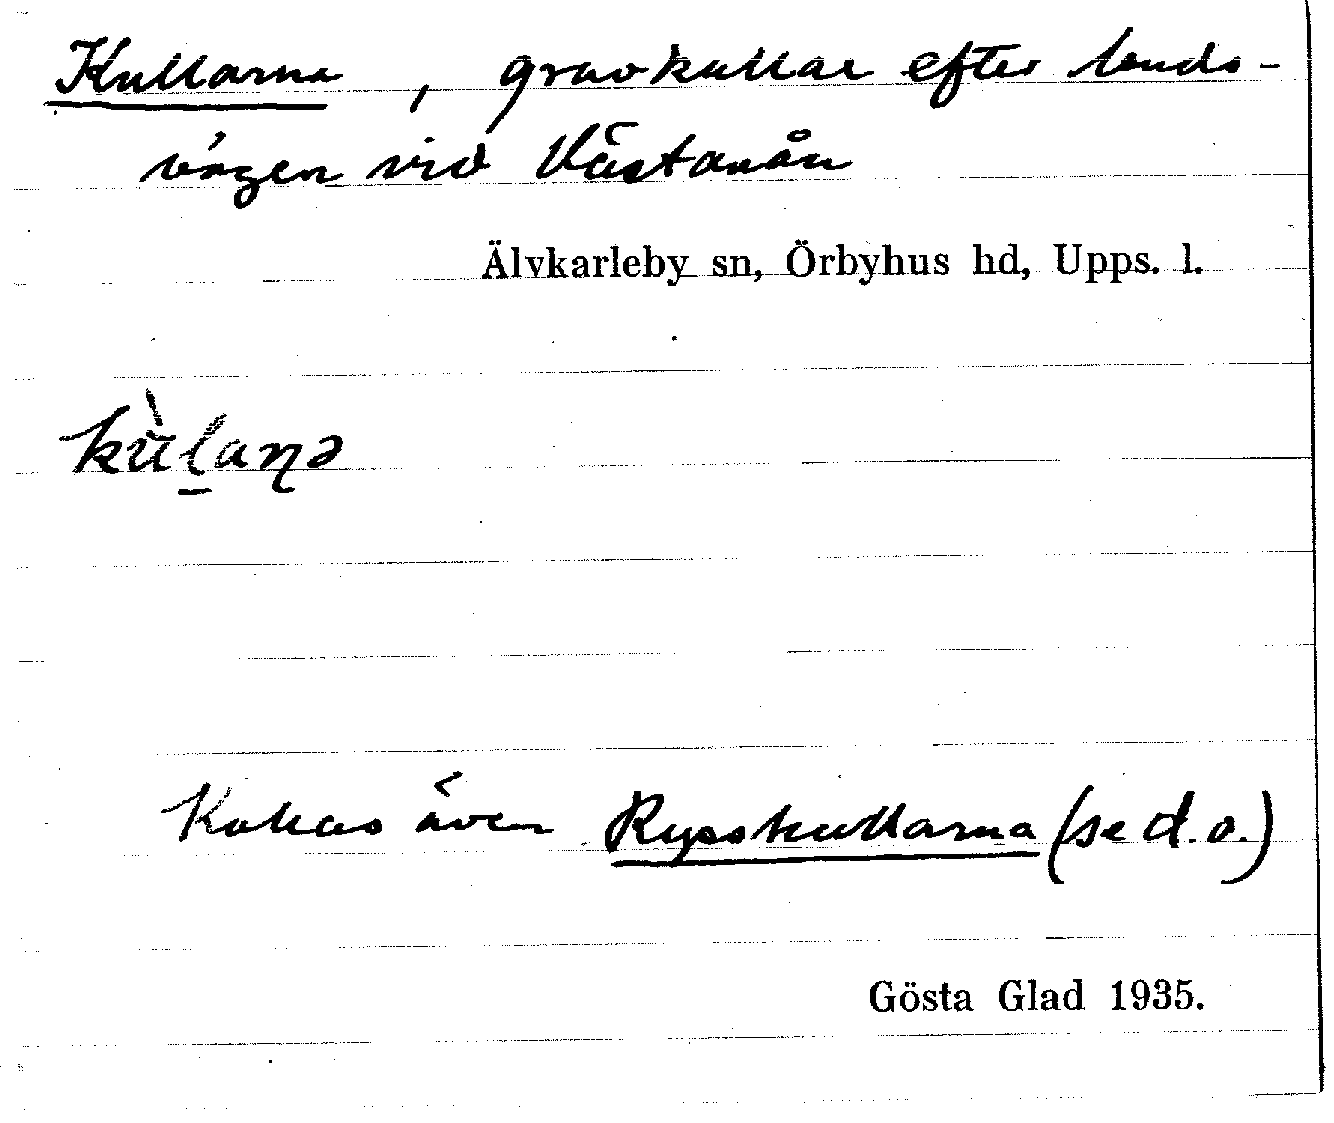 Kullarna, gravkullar efter lands-
vägen vid Västanån
Älvkarleby sn, Örbyhus hd, Upps. l.
kùl̠aɳə
Kallas även Rysskullarna (se d.o.)
Gösta Glad 1935.